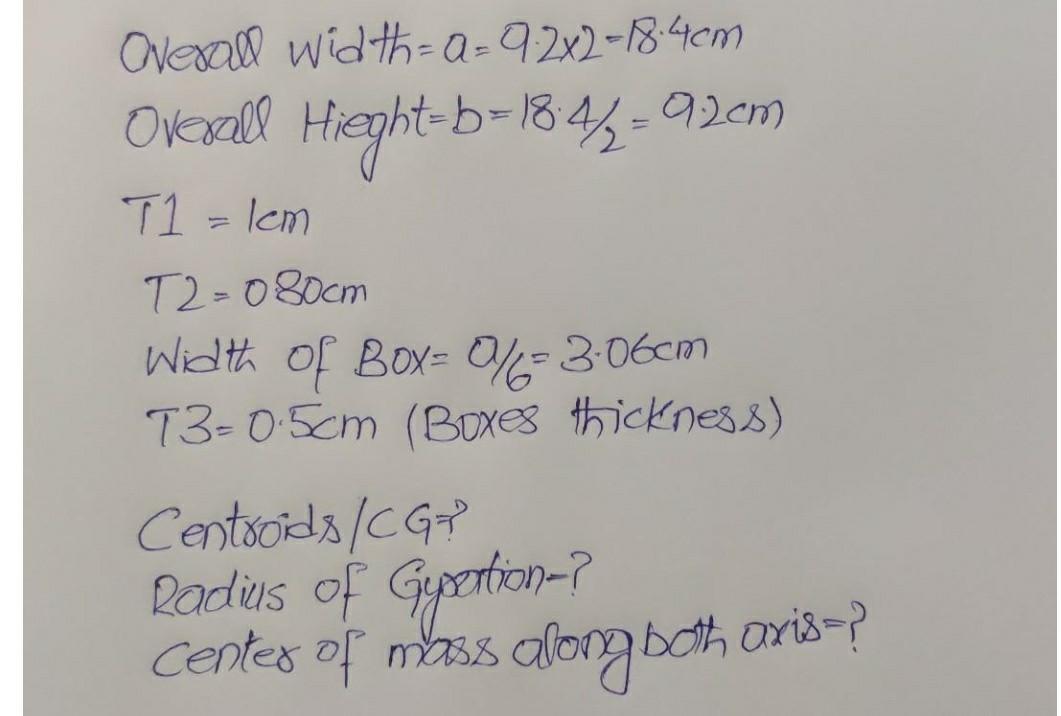 Overall width = a = 9.2x2 = 18.4cm
Overall Hieght = b = 18.4/2 = 9.2cm
T1 = 1cm
T2 = 0.80cm
Width of Box = a/6 = 3.06cm
T3 = 0.5cm (Boxes thickness)
Centroids/CG = ?
Radius of Gyration = ?
Center of mass along both axis = ?